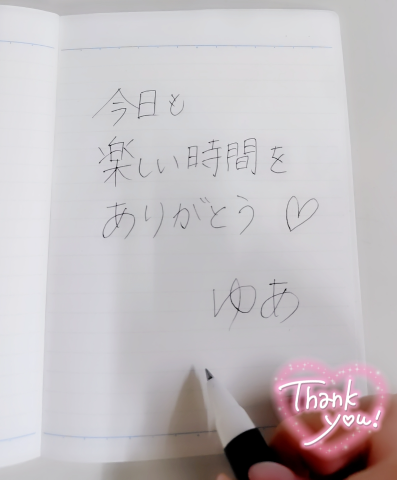 今日も
楽しい時間を
ありがとう♡
ゆあ
Thank
you!